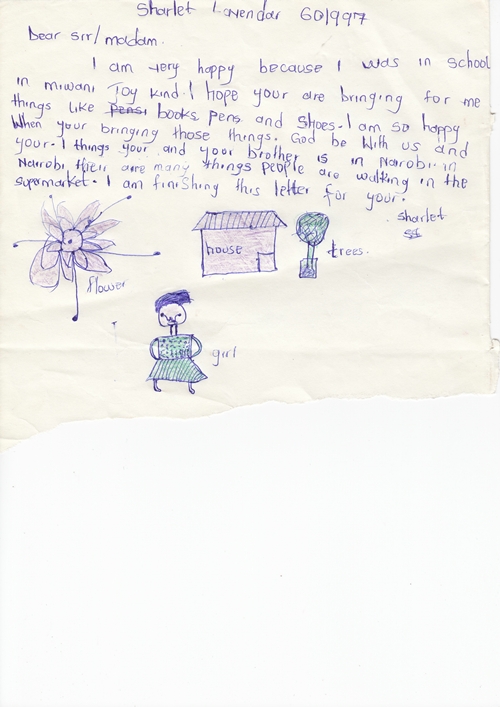 Sharlet Lavendar 60/997
Dear sir/madam.
I am very happy because I was in school
in miwani Toy kind. I hope your are bringing for me
things like pensi books pens and shoes. I am so happy
When your bringing those things. God be with us and
your. I things your and your brother is in Nairobi. in
Nairobi their are many things people are walking in the
supermarket. I am finishing this letter for your.
Sharlet
house
trees.
flower
girl